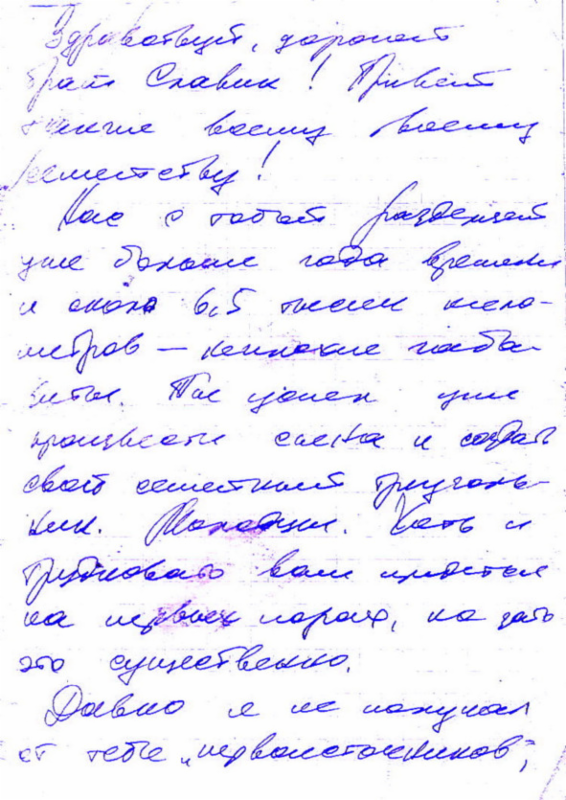 Здравствуй, дорогой
брат Славик! Привет
также всему твоему
семейству!
Нас с тобой разделяет
уже больше года времени
и около 6,5 тысяч кило-
метров — неплохие габа-
риты. Ты успел уже
произвести сынка и создать
свой семейный треуголь-
ник. Молодцы. Хоть и
трудновато вам придется
на первых порах, но зато
это существенно.
Давно я не получал
от тебя „первоисточников",